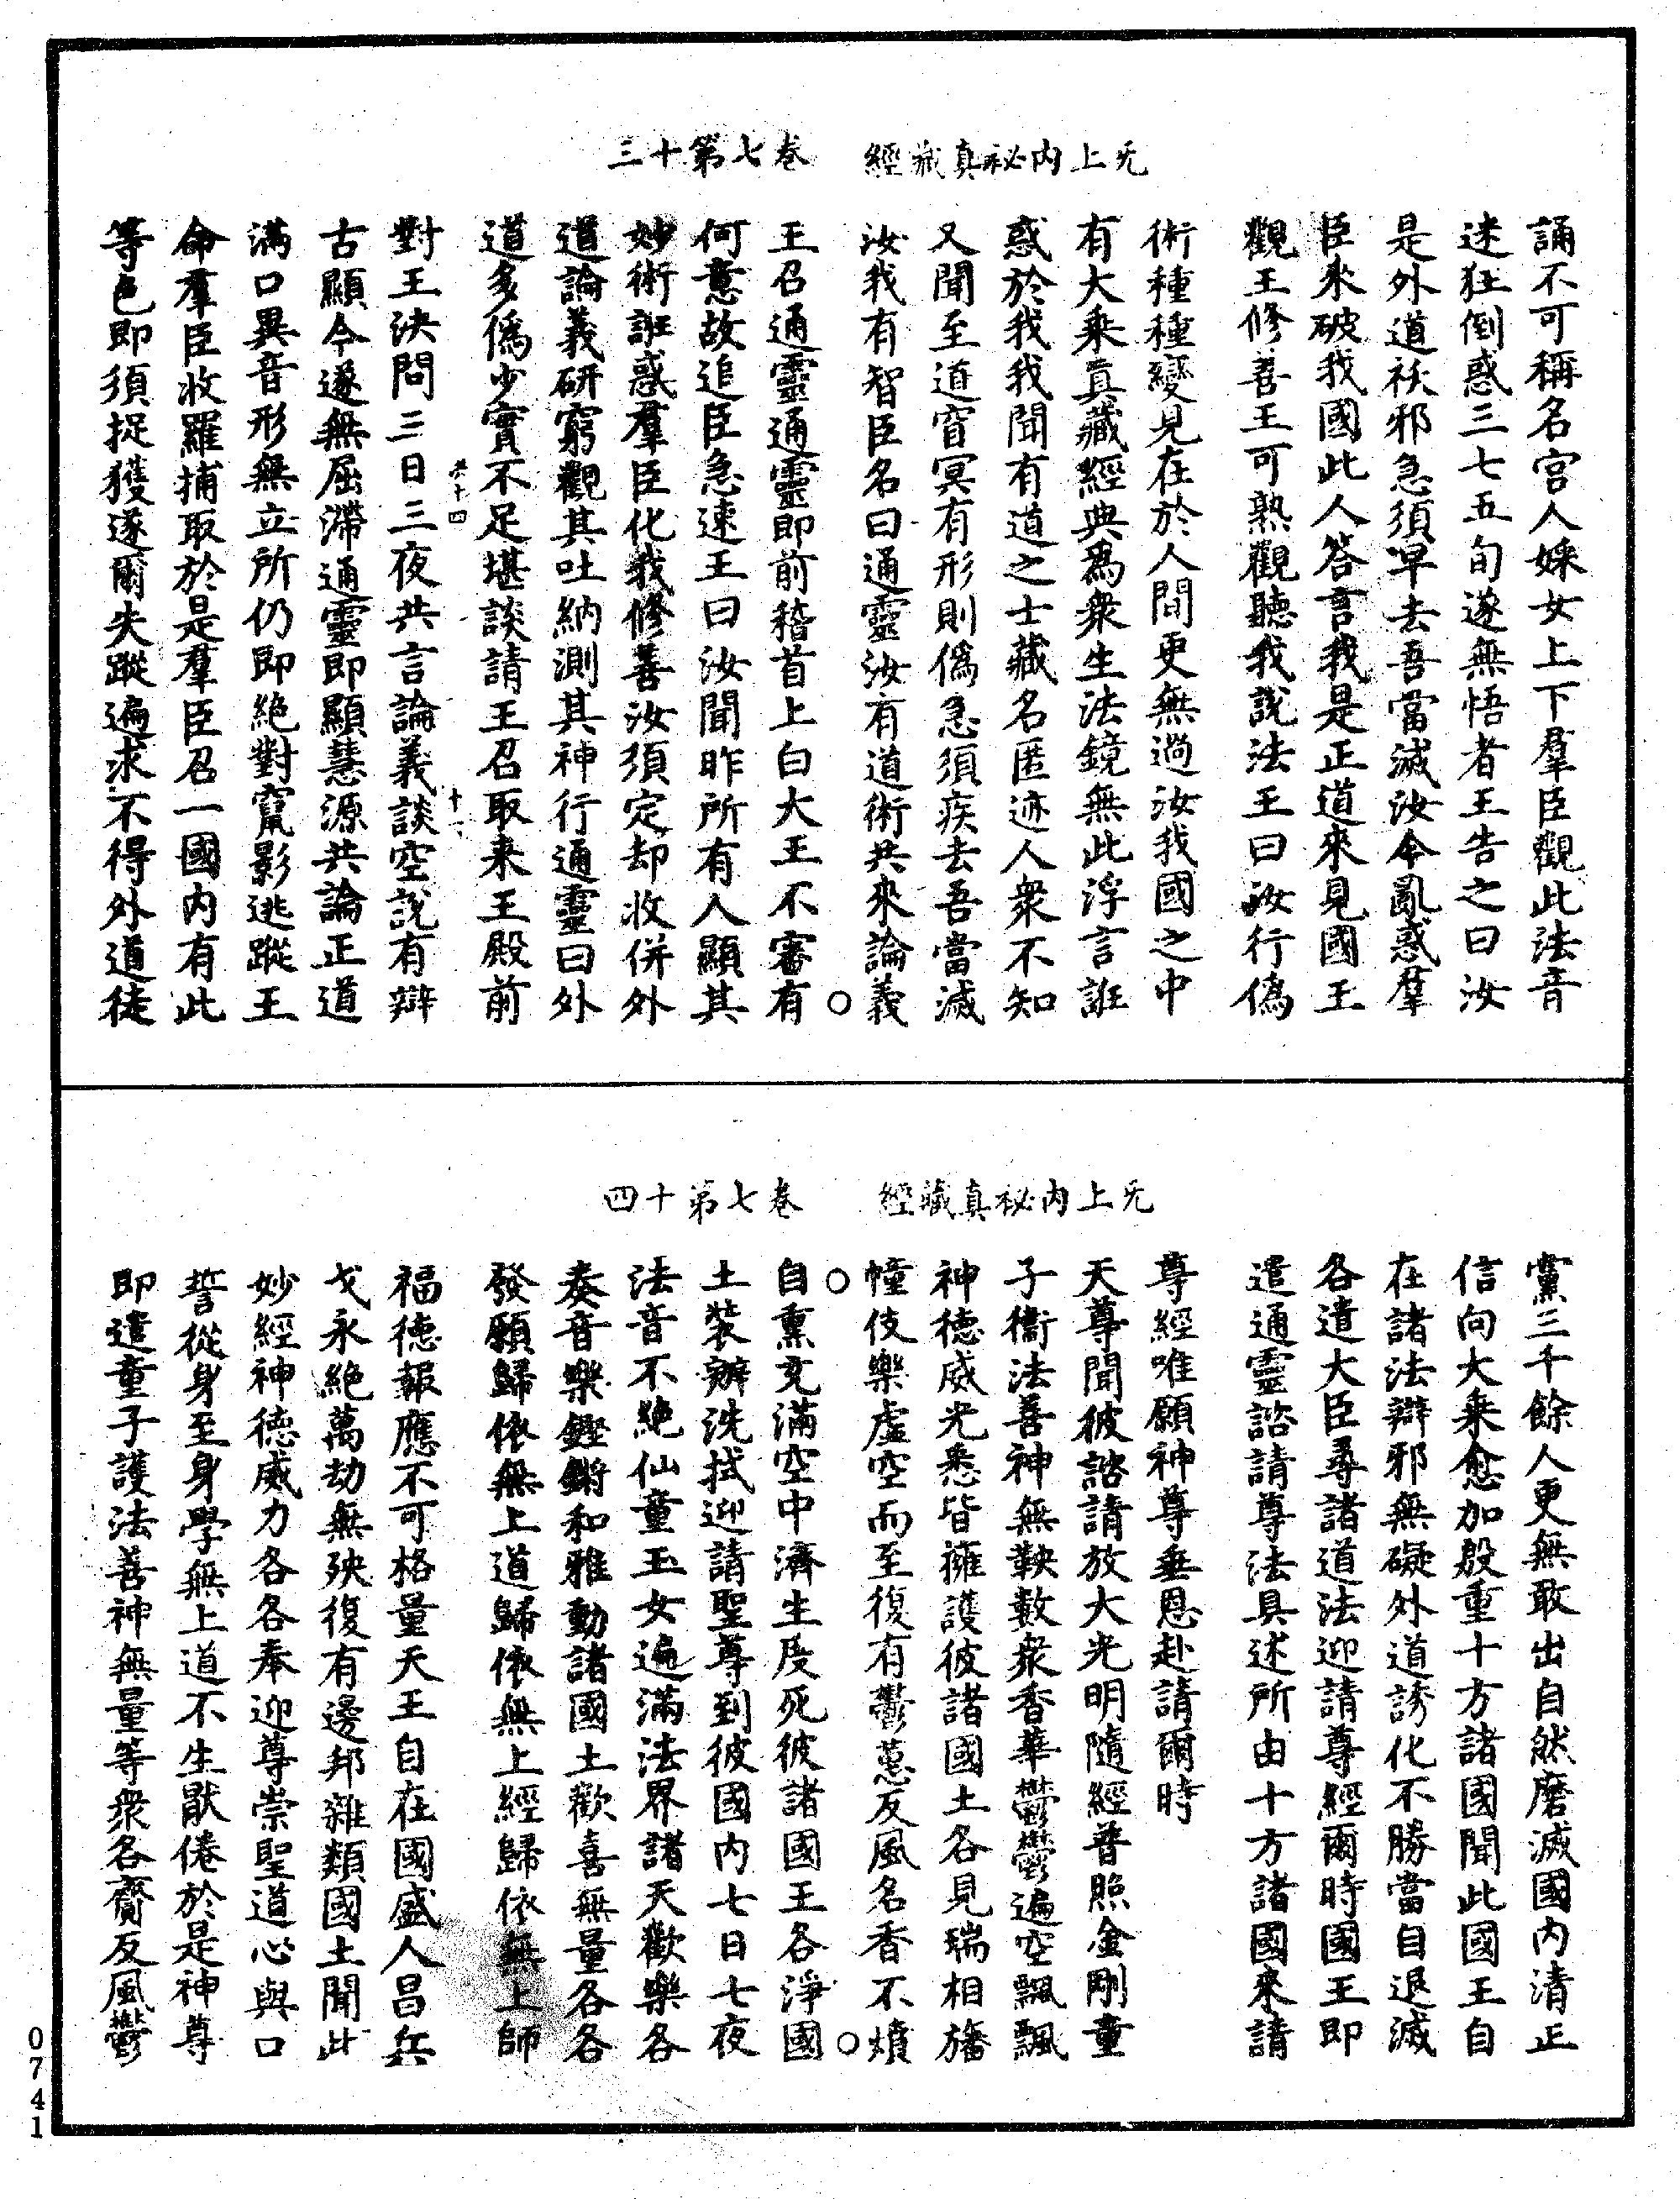 无上內祕真藏經　卷七第十三
誦不可稱名宮人婇女上下羣臣觀此法音
迷狂倒惑三七五旬遂無悟者王告之曰汝
是外道祅邪急須早去吾當滅汝今亂惑羣
臣來破我國此人答言我是正道來見國王
觀王修善王可熟觀聽我說法王曰汝行偽
術種種變見在於人間更無過汝我國之中
有大乘真藏經典為衆生法鏡無此浮言誑
惑於我我聞有道之士藏名匿迹人衆不知
又聞至道窅冥有形則偽急須疾去吾當滅
汝我有智臣名曰通靈汝有道術共來論義
王召通靈通靈即前稽首上白大王不審有
何意故追臣急速王曰汝聞昨所有人顯其
妙術誑惑羣臣化我修善汝須定却收併外
道論義研窮觀其吐納測其神行通靈曰外
道多偽少實不足堪談請王召取来王殿前
卷十四　十一
對王決問三日三夜共言論義談空說有辯
古顯今遂無屈滯通靈即顯慧源共論正道
滿口異音形無立所仍即絕對竄影逃蹤王
命羣臣收羅捕取於是羣臣召一國內有此
等色即須捉獲遂爾失蹤遍求不得外道徒
无上內祕真藏經　卷七第十四
黨三千餘人更無敢出自然磨滅國內清正
信向大乘愈加殷重十方諸國聞此國王自
在諸法辯邪無礙外道誘化不勝當自退滅
各遣大臣尋諸道法迎請尊經爾時國王即
遣通靈諮請尊法具述所由十方諸國來請
尊經唯願神尊垂恩赴請爾時
天尊聞彼諮請放大光明隨經普照金剛童
子衞法善神無鞅數衆香華鬱鬱遍空飄飄
神德威光悉皆擁護彼諸國土各見瑞相旛
幢伎樂虛空而至復有鬱蒽反風名香不燌
自熏充滿空中濟生度死彼諸國王各淨國
土裝辦洗拭迎請聖尊到彼國內七日七夜
法音不絕仙童玉女遍滿法界諸天歡樂各
奏音樂鏗鏘和雅動諸國土歡喜無量各各
發願歸依無上道歸依無上經歸依無上師
福德報應不可格量天王自在國盛人昌兵
戈永絕萬劫無殃復有邊邦雜類國土聞此
妙經神德威力各各奉迎尊崇聖道心與口
誓從身至身學無上道不生猒倦於是神尊
即遣童子護法善神無量等衆各齎反風鬱
0741